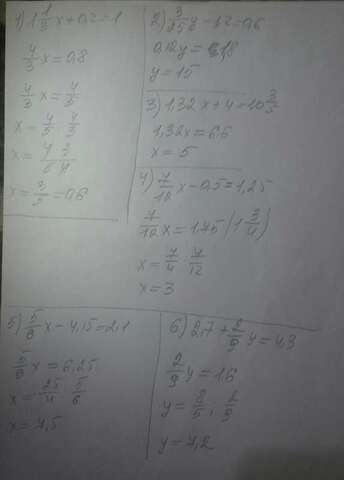 1) 1 1/3 x + 0,2 = 1
4/3 x = 0,8
4/3 x = 4/5
x = 4/5 4/3
x = 3/5 = 0,6
2) 3/25 y - 1,2 = 0,6
y = 15
3) 1,32x + 4 = 10 3/5
1,32x = 6,6
x = 5
4) 7/12 x - 0,5 = 1,25
7/12 x = 1,75 (1 3/4)
x = 7/4 7/12
x = 3
5) 5/6 x - 4,15 = 2,1
5/6 x = 6,25
x = 25/4 5/6
x = 7,5
6) 2,7 + 2/9 y = 4,3
2/9 y = 1,6
y = 8/5 , 2/9
y = 7,2